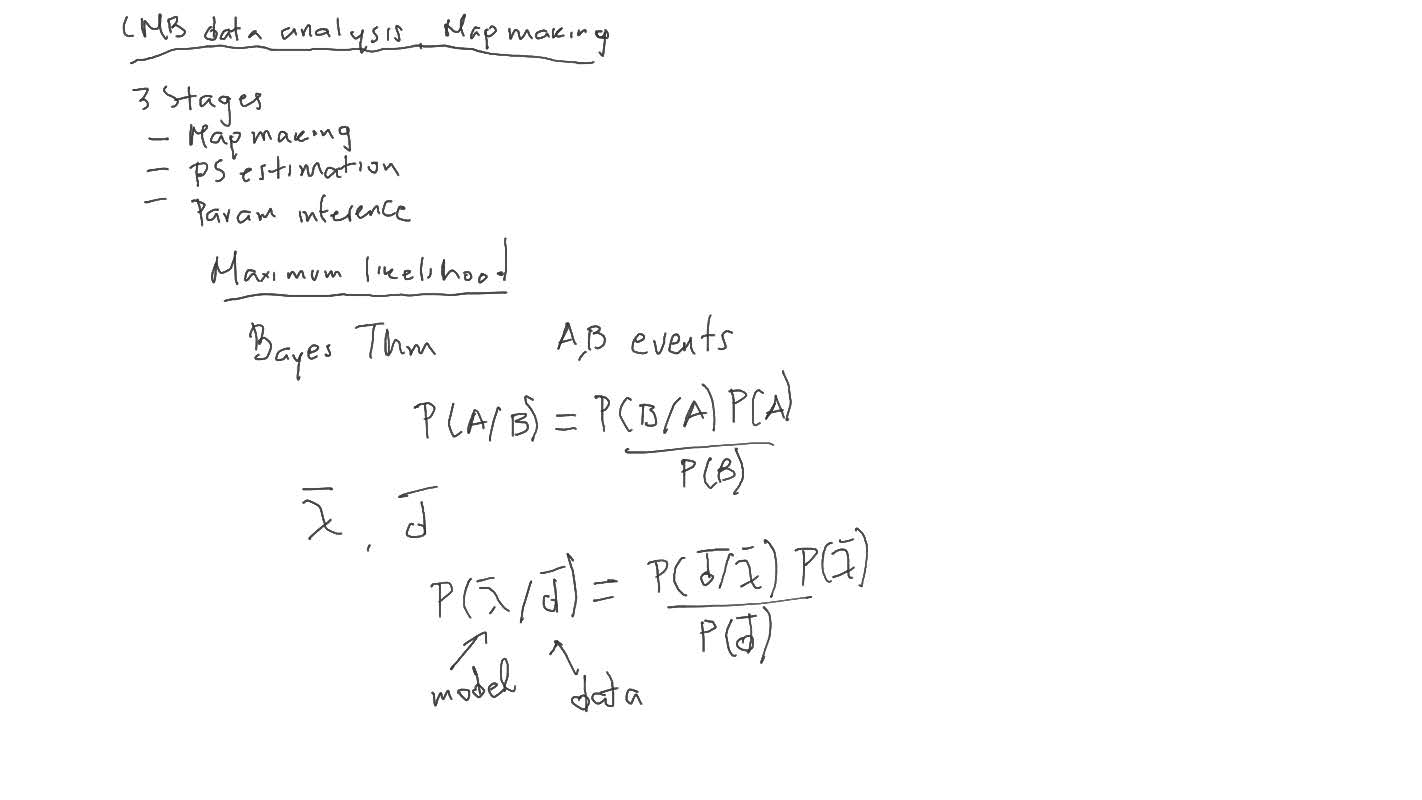 CMB data analysis. Map making
3 Stages
- Map making
- PS estimation
- Param inference
Maximum likelihood
Bayes Thm A,B events
P(A/B) = P(B/A) P(A)
P(B)
λ̄, d̄
P(λ̄/d̄) = P(d̄/λ̄) P(λ̄)
P(d̄)
model data